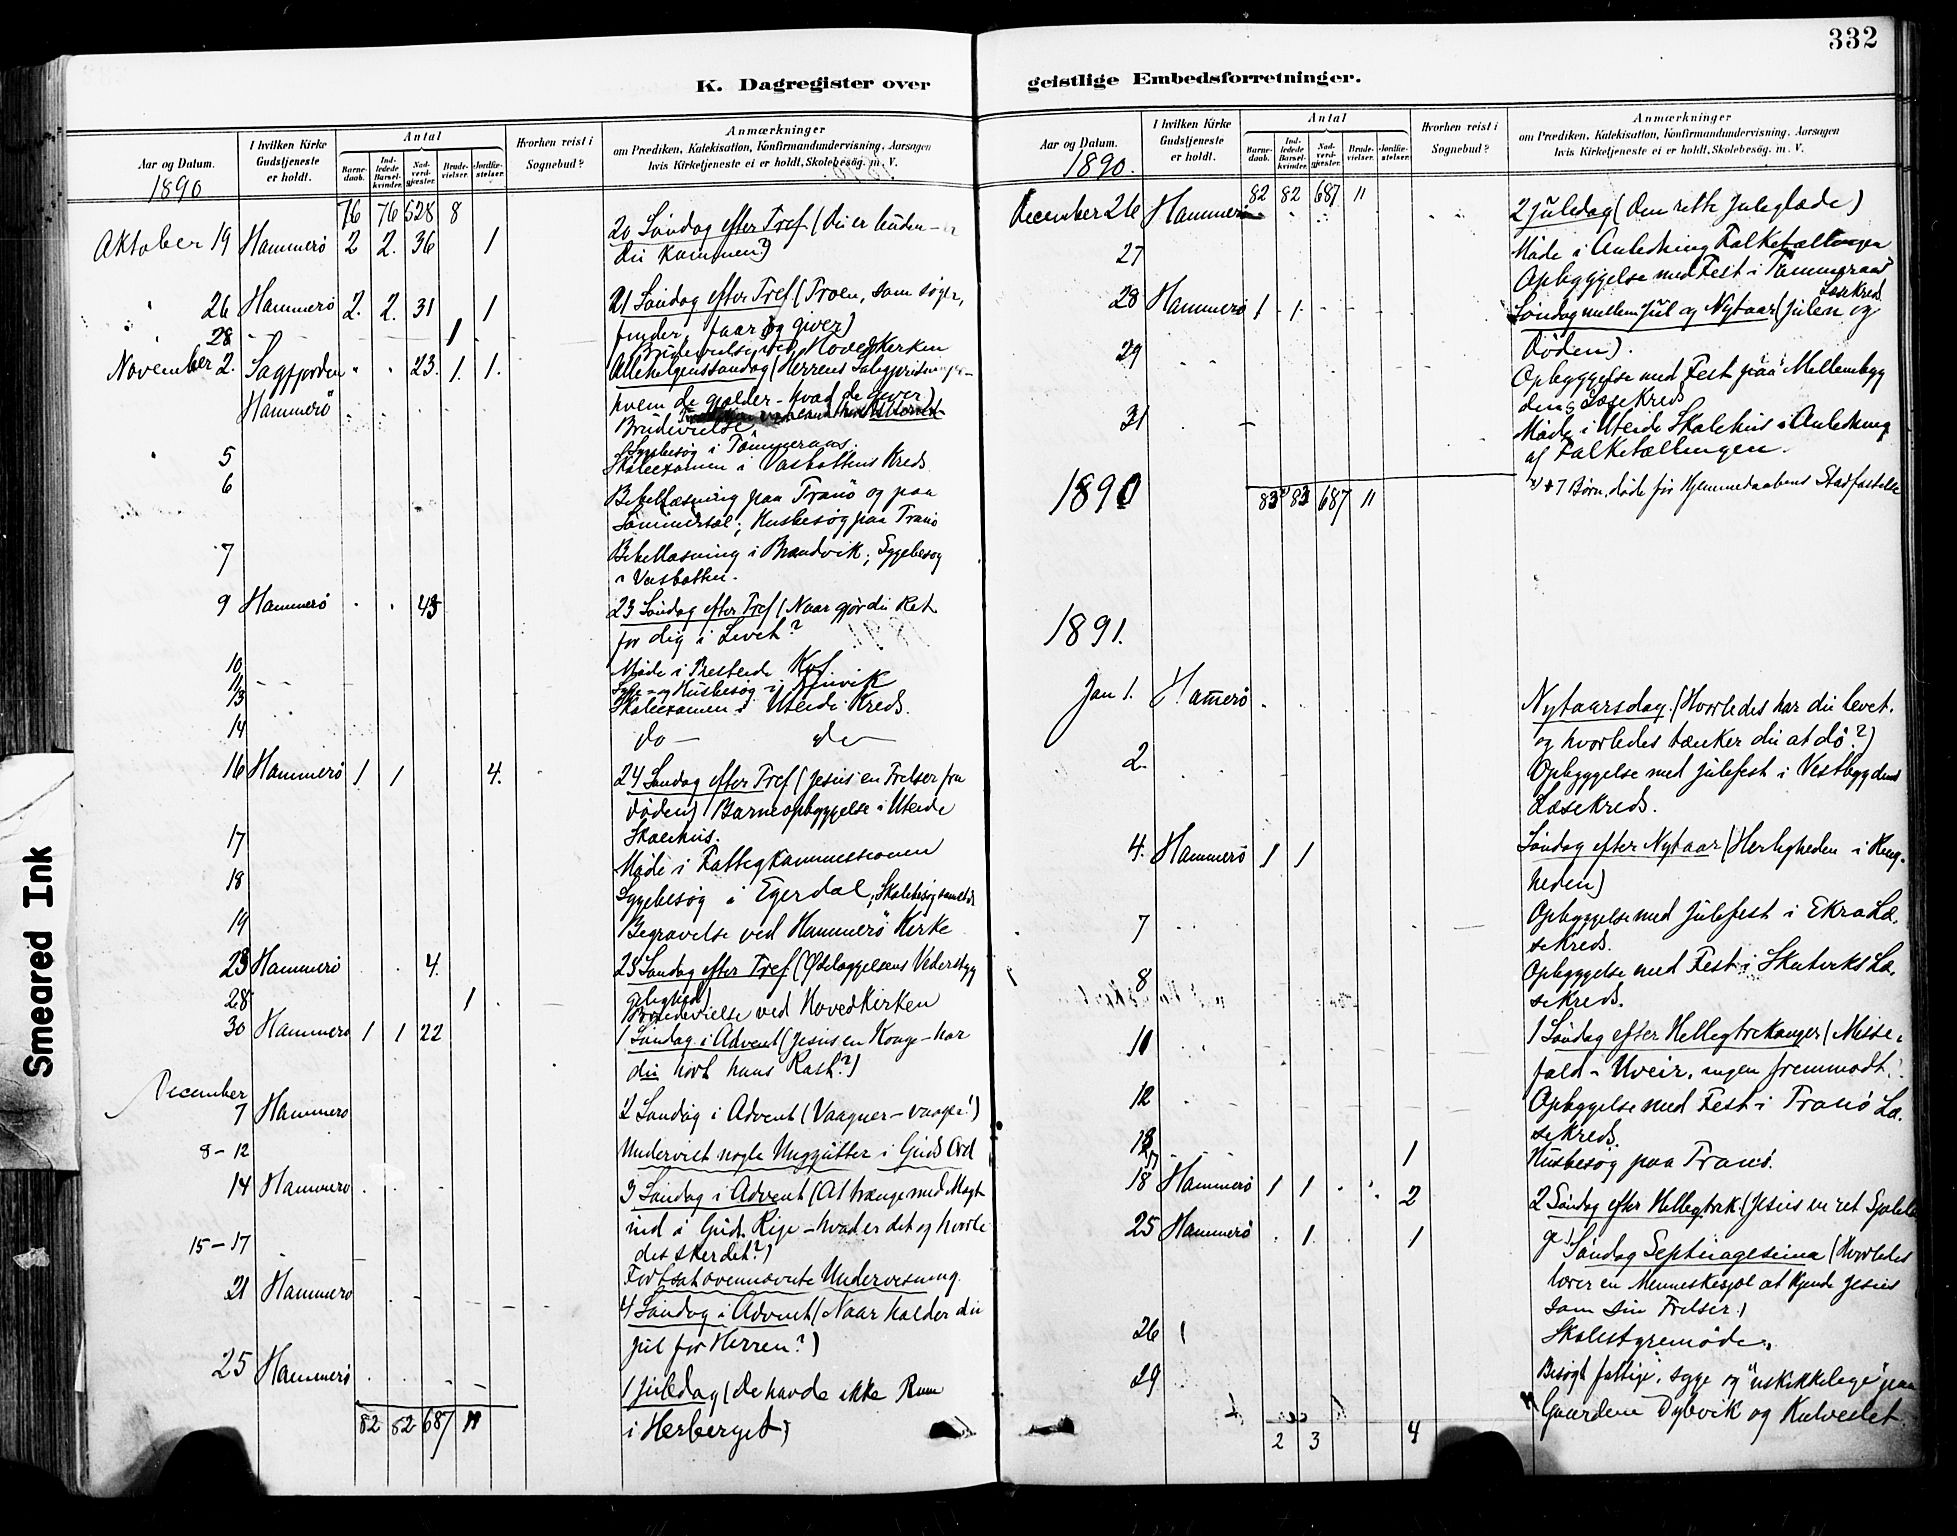 332
K. Dagregister over
geistlige Embedsforretninger.
Aar og Datum.
1890
I hvilken Kirke Gudstjeneste er holdt.
Antal
Barnedaab.
Indledede Barselkvinder.
Nadverdgjester.
Brudevielser.
Jordfæstelser.
Hvorhen reist i Sognebud?
Anmærkninger
om Prædiken, Katekisation, Konfirmandundervisning, Aarsagen
hvis Kirketjeneste ei er holdt, Skolebesøg. m. V.
76 76 528 8
Oktober 19 Hammerö 2 2. 36 1 20 Söndag efter Tref (Du er buden - er
du kommen?)
26 Hammerö 2. 2. 31 1 21 Söndag efter Tref (Troen, som søger,
finder, faar og giver)
28 1 Brudevielse ved Hovedkirken
November 2. Sagfjorden 23. 1. 1. Allehelgenssöndag (Herrens
hvem de gjælder - hvad de giver)
Hammerö
Brudevielse
Sygebesög i Tömmeraas.
5 Skoleexamen i Vasbottens Kreds
6 Bibellæsning paa Tranö og paa
Husbesög paa Tranö
7 Bibellæsning i Brandvik; Sygebesög
i Vasbotten.
9 Hammerö 43 23 Söndag efter Tref (Naar gjør du Ret
for dig i Livet?
10 Möde i Presteide
11 Syge- og Husbesög i
13 Skoleexamen i Uteide Kreds.
14 do do
16 Hammerö 1 1 4. 24 Söndag efter Tref (Jesus en Frelser fra
Döden) Barneopbyggelse i Uteide
Skolehus.
17 Möde i Fattigkommissionen
18 Sygebesög i Egerdal; Skolebesög
19 Begravelse ved Hammerö Kirke
23 Hammerö 4. 25 Söndag efter Tref (Ödelæggelsens Vederstyg
gelighed)
28 1 Brudevielse ved Hovedkirken
30 Hammerö 1 1 22 1 Söndag i Advent (Jesus en Konge - har
du hört hans Röst?)
December
7 Hammerö 2 Söndag i Advent (Vaagner - vaager!)
8-12 Undervist nogle Unggutter i Guds Ord
14 Hammerö 3 Söndag i Advent (At trænge med Magt
ind i Guds Rige - hvad er det og hvorle
des sker det?)
15-17 Fortsat ovennævnte Undervisning.
21 Hammerö 4 Söndag i Advent (Naar holder du
Jul for Herren?)
25 Hammerö 1 Juledag (De havde ikke Rum
i Herberget)
82 82 687 11
Aar og Datum.
1890.
I hvilken Kirke Gudstjeneste er holdt.
Antal
Barnedaab.
Indledede Barselkvinder.
Nadverdgjester.
Brudevielser.
Jordfæstelser.
Hvorhen reist i Sognebud?
Anmærkninger
om Prædiken, Katekisation, Konfirmandundervisning, Aarsagen
hvis Kirketjeneste ei er holdt, Skolebesøg. m. V.
82 82 687 11
December 26 Hammerö 2 Juledag (Den rette Juleglæde)
27 Möde i Anledning Folketællingen
Opbyggelse med Fest i Tömmeraas
Læsekreds
28 Hammerö 1 1 Söndag mellem Jul og Nytaar (Julen og
Döden).
29 Opbyggelse med Fest paa Mellembyg
dens Læsekreds
31 Möde i Uteide Skolehus i Anledning
af Folketællingen.
1890 83 83 687 11 + 7 Börn, döde för Hjemmedaabens Stadfæstelse
1891.
Jan 1. Hamerö Nytaarsdag. (Hvorledes har du levet.
og hvorledes tænker du at dö?)
2. Opbyggelse med Julefest i Vestbygdens
Læsekreds.
4. Hammerö 1 1 Söndag efter Nytaar (Herligheden i Ring-
heden)
7 Opbyggelse med Julefest i Ekra Læ-
sekreds.
8 Opbyggelse med Fest i Skutviks Læ-
sekreds.
1 Söndag efter Hellegtrekonger (Misse-
fald - Uveir, ingen fremmødt.
12 Opbyggelse med Fest i Tranö Læ-
sekreds.
13 Husbesög paa Tranö.
17 1
18 Hammerö 1 1 2 2 Söndag efter Hellegtrek. (Jesus en ret Sjælelæ
ge)
25 Hammerö 1 1 Söndag Septuagesima (Hvorledes
lærer en Menneskesjæl at kjende Jesus
som sin Frelser.)
26 Skolestyremöde.
29 Besögt fattige, syge og "uskikkelige" paa
Gaardene Dybvik og Kalveslet.
2 3 4
Smeared Ink